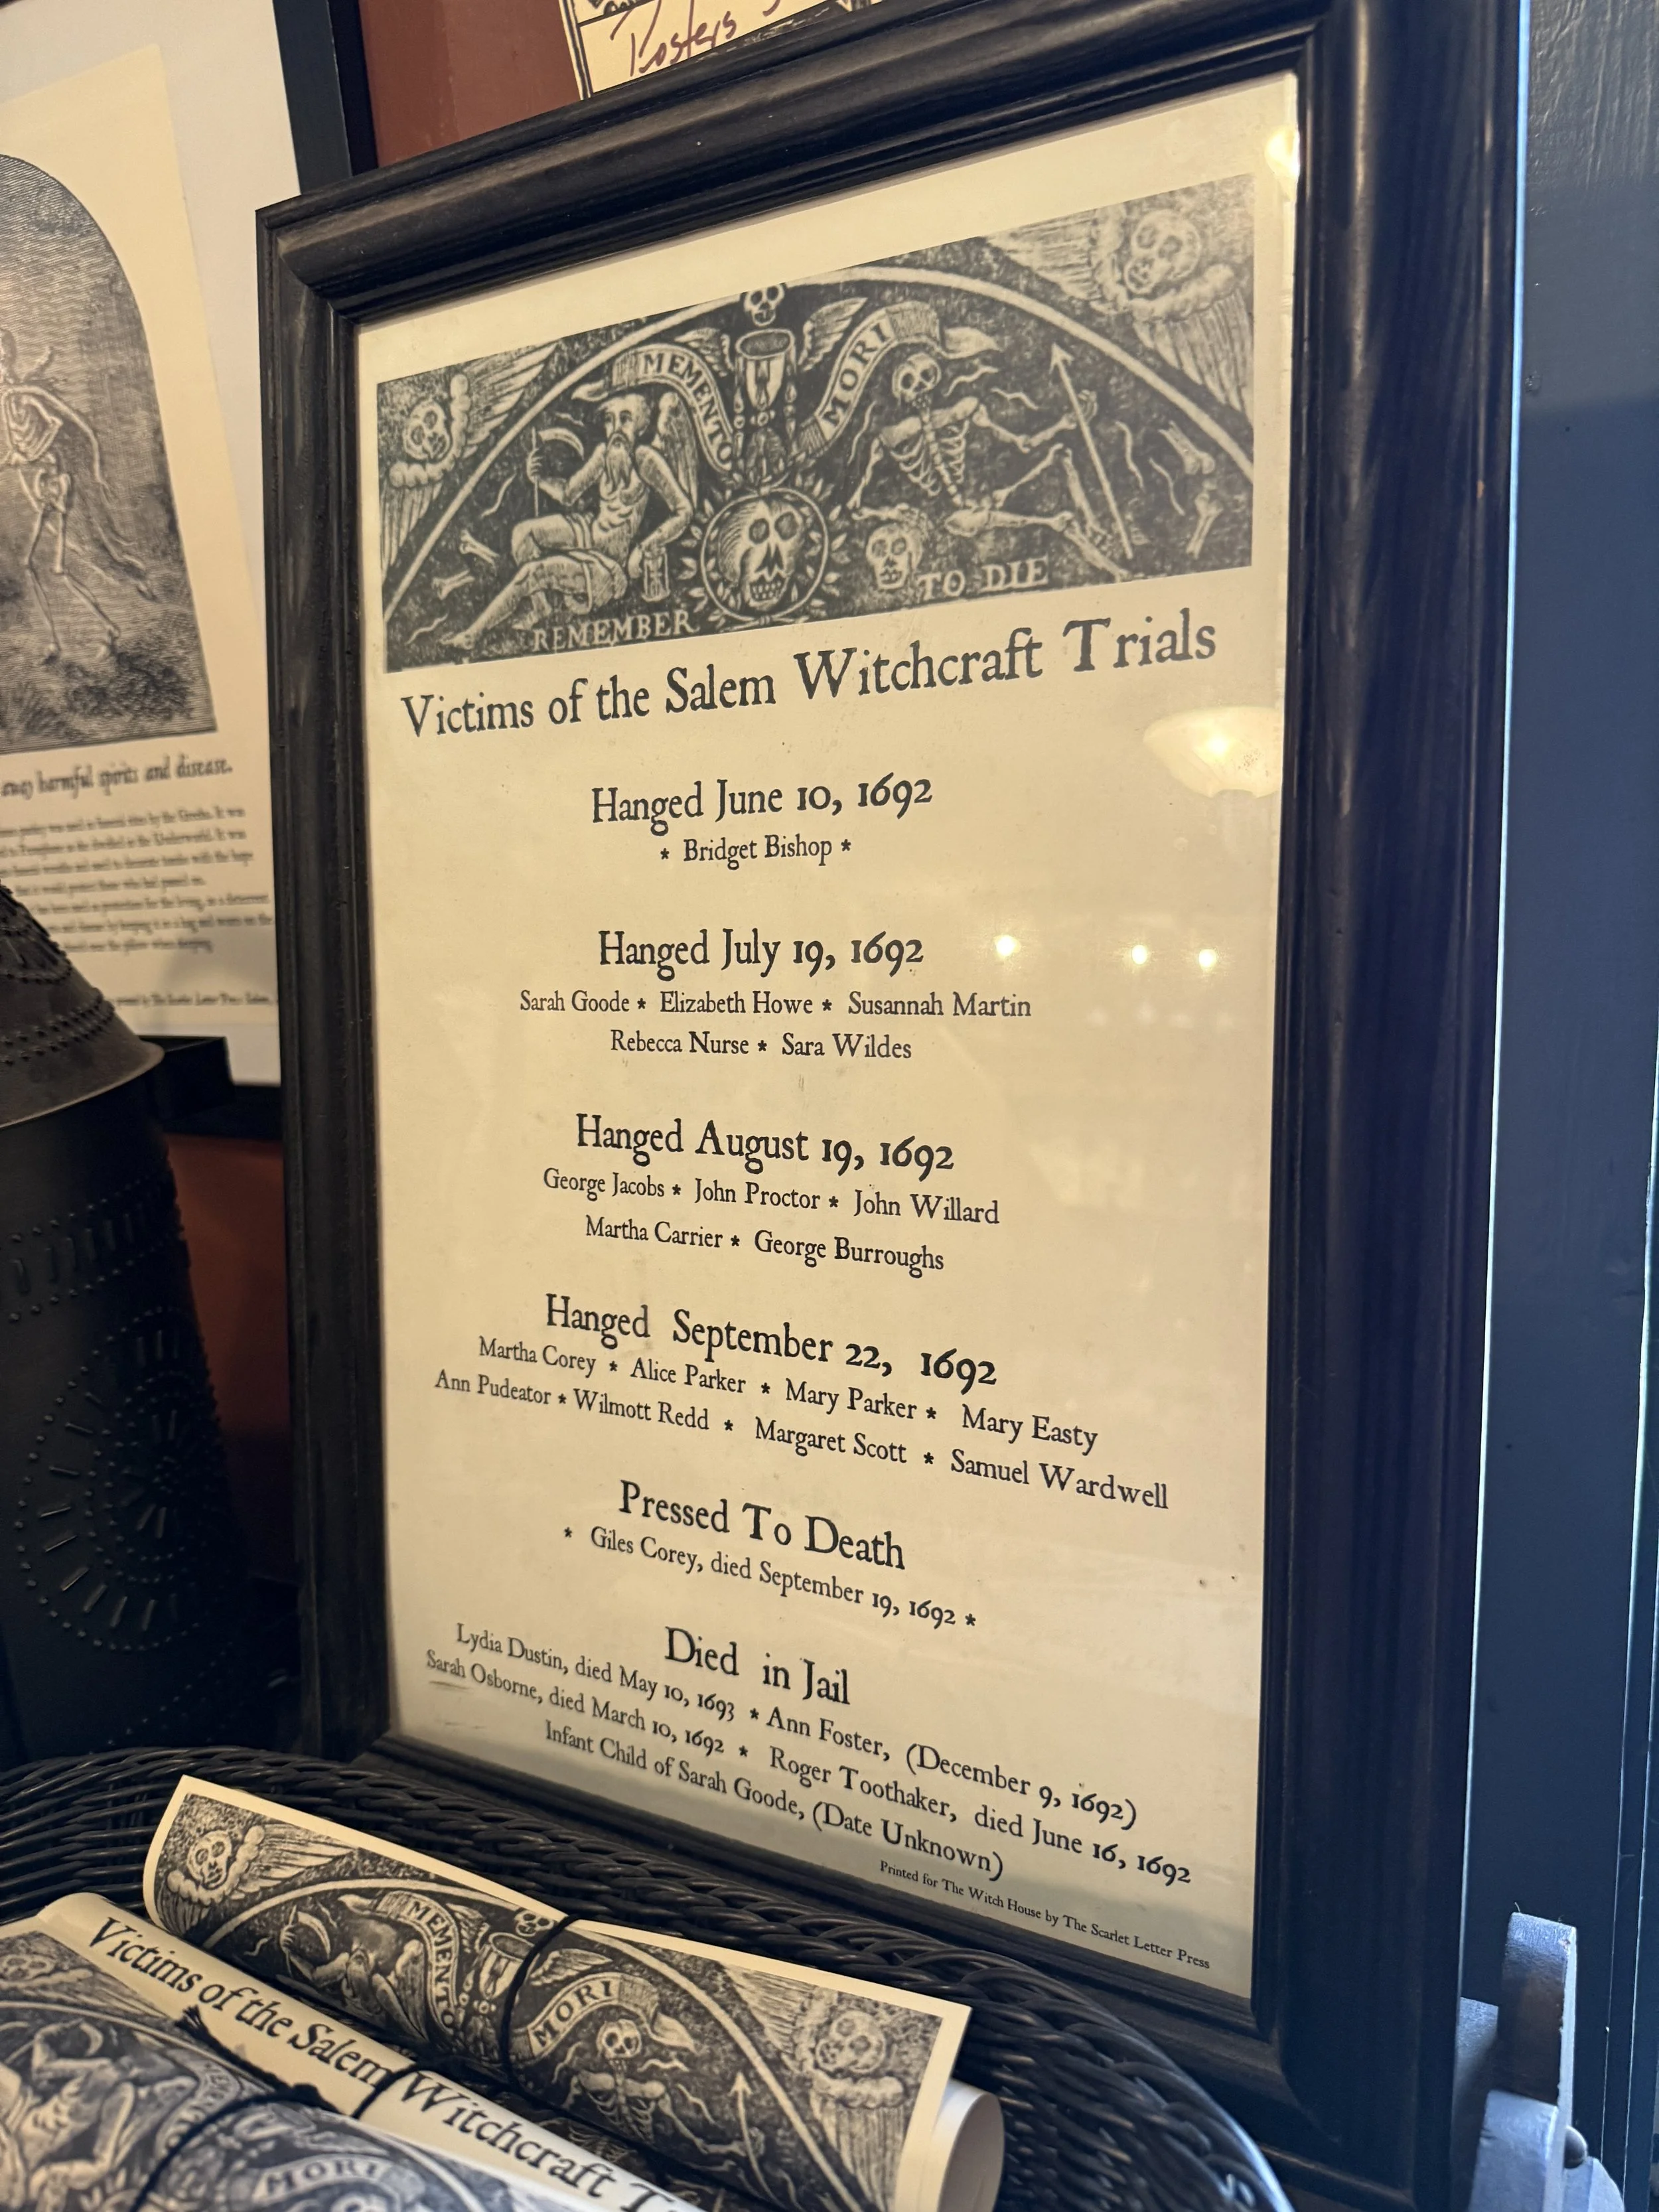 Posters
MEMENTO MORI
REMEMBER TO DIE
Victims of the Salem Witchcraft Trials
Hanged June 10, 1692
* Bridget Bishop *
Hanged July 19, 1692
Sarah Goode * Elizabeth Howe * Susannah Martin
Rebecca Nurse * Sara Wildes
Hanged August 19, 1692
George Jacobs * John Proctor * John Willard
Martha Carrier * George Burroughs
Hanged September 22, 1692
Martha Corey * Alice Parker * Mary Parker * Mary Easty
Ann Pudeator * Wilmott Redd * Margaret Scott * Samuel Wardwell
Pressed To Death
* Giles Corey, died September 19, 1692 *
Died in Jail
Lydia Dustin, died May 10, 1693 * Ann Foster, (December 9, 1692)
Sarah Osborne, died March 10, 1692 * Roger Toothaker, died June 16, 1692
Infant Child of Sarah Goode, (Date Unknown)
Printed for The Witch House by The Scarlet Letter Press
away harmful spirits and disease.
MEMENTO MORI
Victims of the Salem Witchcraft
MORI